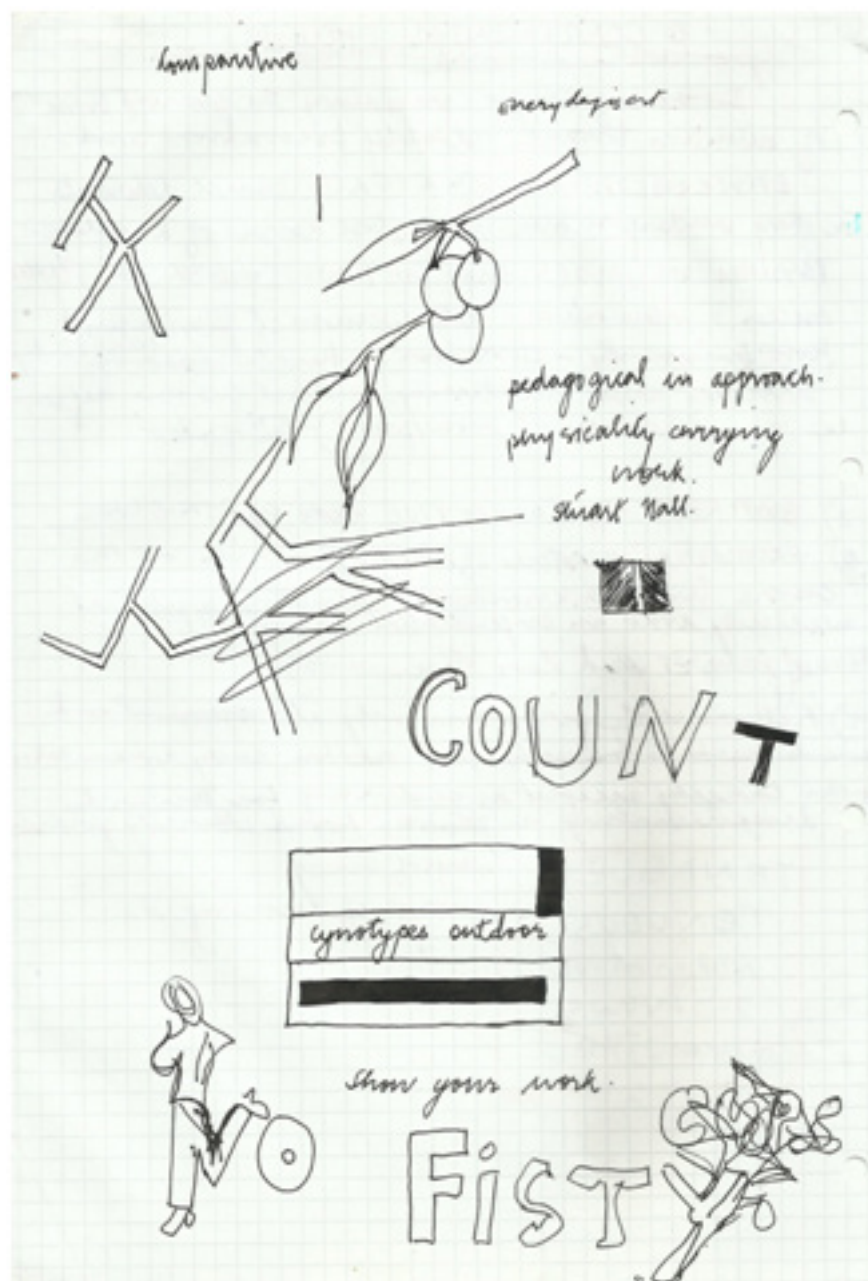 comparitive
everyday is art
pedagogical in approach.
physicality carrying
work.
Stuart Hall.
COUNT
cynotypes outdoor
Show your work.
NO
FiSTY